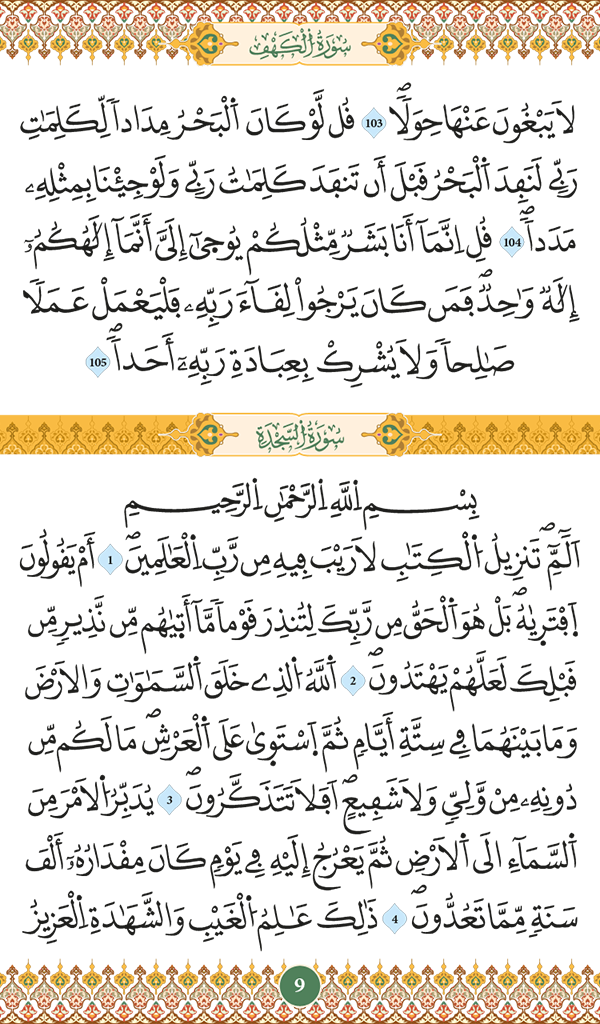 سُورَةُ الْكَهْفِ
لَا يَبْغُونَ عَنْهَا حِوَلاٗۖ 103 قُل لَّوْ كَانَ اَ۬لْبَحْرُ مِدَاداٗ لِّكَلِمَٰتِ
رَبِّے لَنَفِدَ اَ۬لْبَحْرُ قَبْلَ أَن تَنفَدَ كَلِمَٰتُ رَبِّے وَلَوْ جِئْنَا بِمِثْلِهِۦ
مَدَداٗۖ 104 قُلِ اِنَّمَآ أَنَا بَشَرٞ مِّثْلُكُمْ يُوح۪يٰٓ إِلَيَّ أَنَّمَآ إِلَٰهُكُمُۥٓ
إِلَٰهٞ وَٰحِدٞۖ فَمَن كَانَ يَرْجُواْ لِقَآءَ رَبِّهِۦ فَلْيَعْمَلْ عَمَلاٗ
صَٰلِحاٗ وَلَا يُشْرِكْ بِعِبَادَةِ رَبِّهِۦٓ أَحَداٗۖ 105
سُورَةُ السَّجْدَةِ
بِسْمِ اِ۬للَّهِ اِ۬لرَّحْمَٰنِ اِ۬لرَّحِيمِ
أَلَٓمِّٓۖ تَنزِيلُ اُ۬لْكِتَٰبِ لَا رَيْبَ فِيهِ مِن رَّبِّ اِ۬لْعَٰلَمِينَۖ 1 أَمْ يَقُولُونَ
اَ۪فْتَر۪يٰهُۖ بَلْ هُوَ اَ۬لْحَقُّ مِن رَّبِّكَ لِتُنذِرَ قَوْماٗ مَّآ أَت۪يٰهُم مِّن نَّذِيرٖ مِّن
قَبْلِكَ لَعَلَّهُمْ يَهْتَدُونَۖ 2 اَ۬للَّهُ اُ۬لذِے خَلَقَ اَ۬لسَّمَٰوَٰتِ وَالَارْضَ
وَمَا بَيْنَهُمَا فِے سِتَّةِ أَيَّامٖ ثُمَّ اَ۪سْتَو۪يٰ عَلَي اَ۬لْعَرْشِۖ مَا لَكُم مِّن
دُونِهِۦ مِنْ وَّلِيّٖ وَلَا شَفِيعٍۖ اَفَلَا تَتَذَكَّرُونَۖ 3 يُدَبِّرُ اُ۬لَامْرَ مِنَ
اَ۬لسَّمَآءِ اِلَي اَ۬لَارْضِ ثُمَّ يَعْرُجُ إِلَيْهِ فِے يَوْمٖ كَانَ مِقْدَارُهُۥٓ أَلْفَ
سَنَةٖ مِّمَّا تَعُدُّونَۖ 4 ذَٰلِكَ عَٰلِمُ اُ۬لْغَيْبِ وَالشَّهَٰدَةِ اِ۬لْعَزِيزُ
9